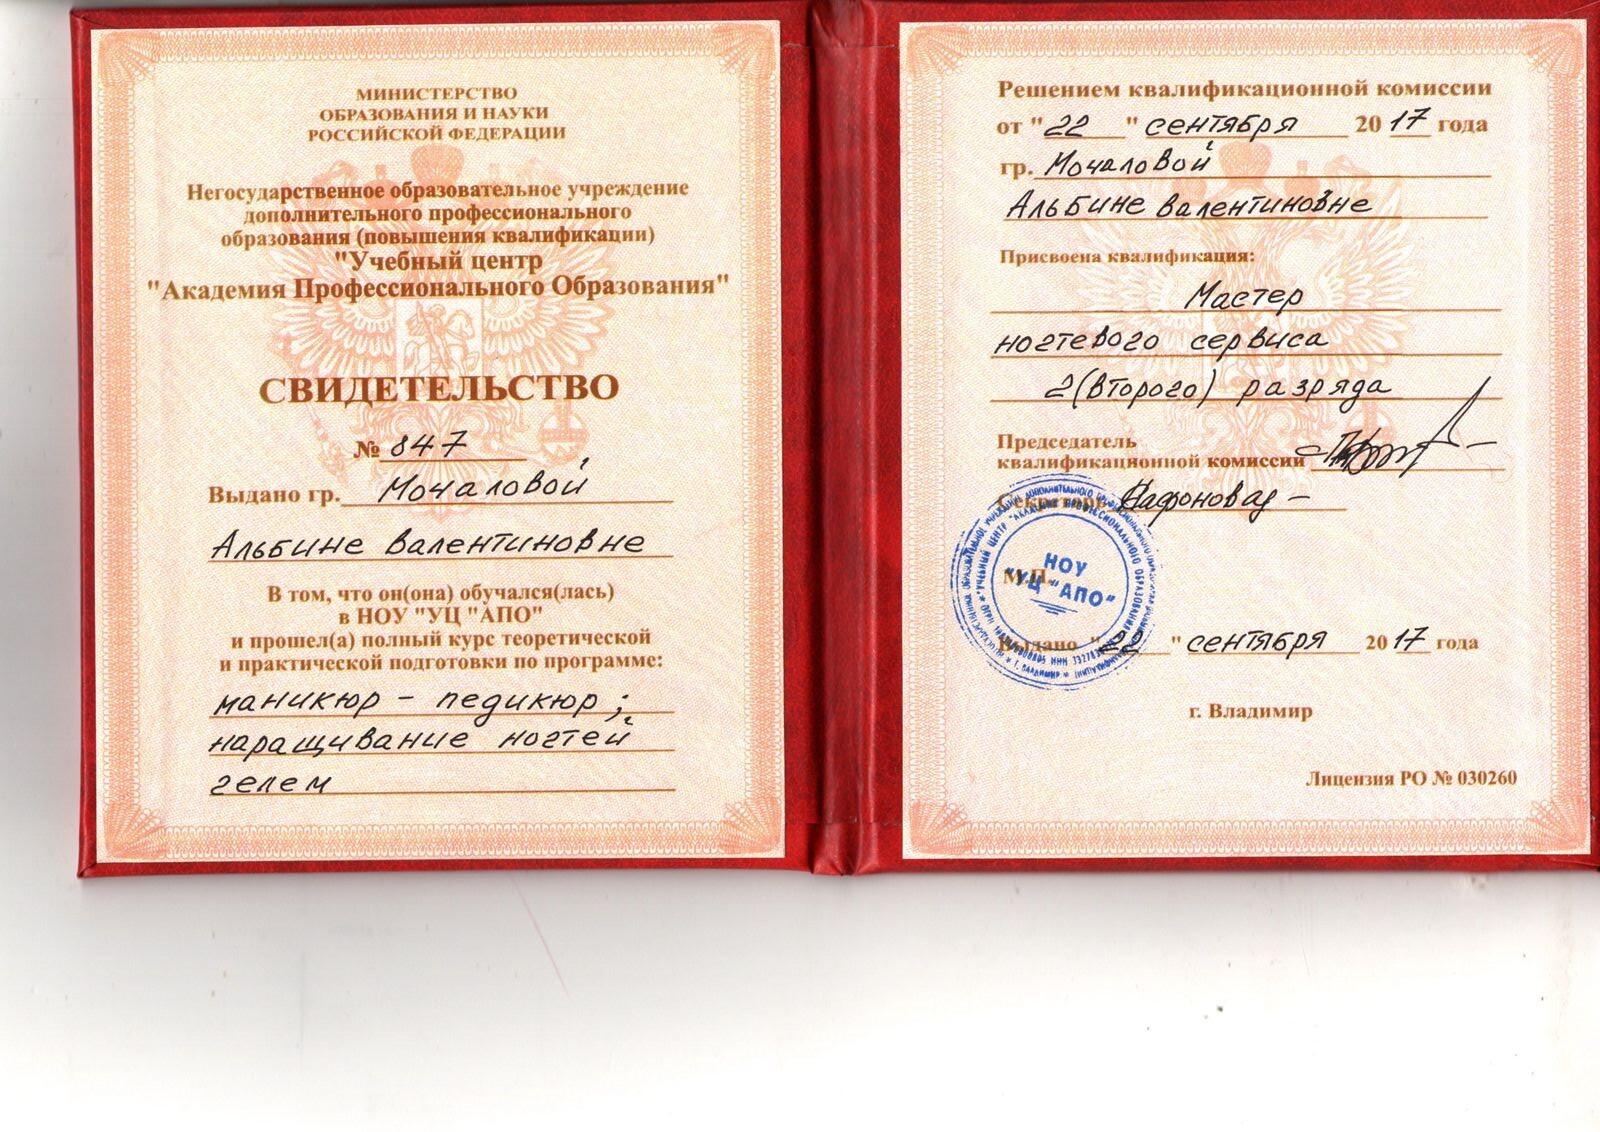 МИНИСТЕРСТВО
ОБРАЗОВАНИЯ И НАУКИ
РОССИЙСКОЙ ФЕДЕРАЦИИ
Негосударственное образовательное учреждение
дополнительного профессионального
образования (повышения квалификации)
"Учебный центр
"Академия Профессионального Образования"
СВИДЕТЕЛЬСТВО
№ 847
Выдано гр. Мочаловой
Альбине Валентиновне
В том, что он(она) обучался(лась)
в НОУ "УЦ "АПО"
и прошел(а) полный курс теоретической
и практической подготовки по программе:
маникюр - педикюр;
наращивание ногтей
гелем
Решением квалификационной комиссии
от "22" сентября 2017 года
гр. Мочаловой
Альбине Валентиновне
Присвоена квалификация:
Мастер
ногтевого сервиса
2(второго) разряда
Председатель
квалификационной комиссии
Секретарь
М.П.
НОУ
"УЦ "АПО"
Выдано "22" сентября 2017 года
г. Владимир
Лицензия РО № 030260